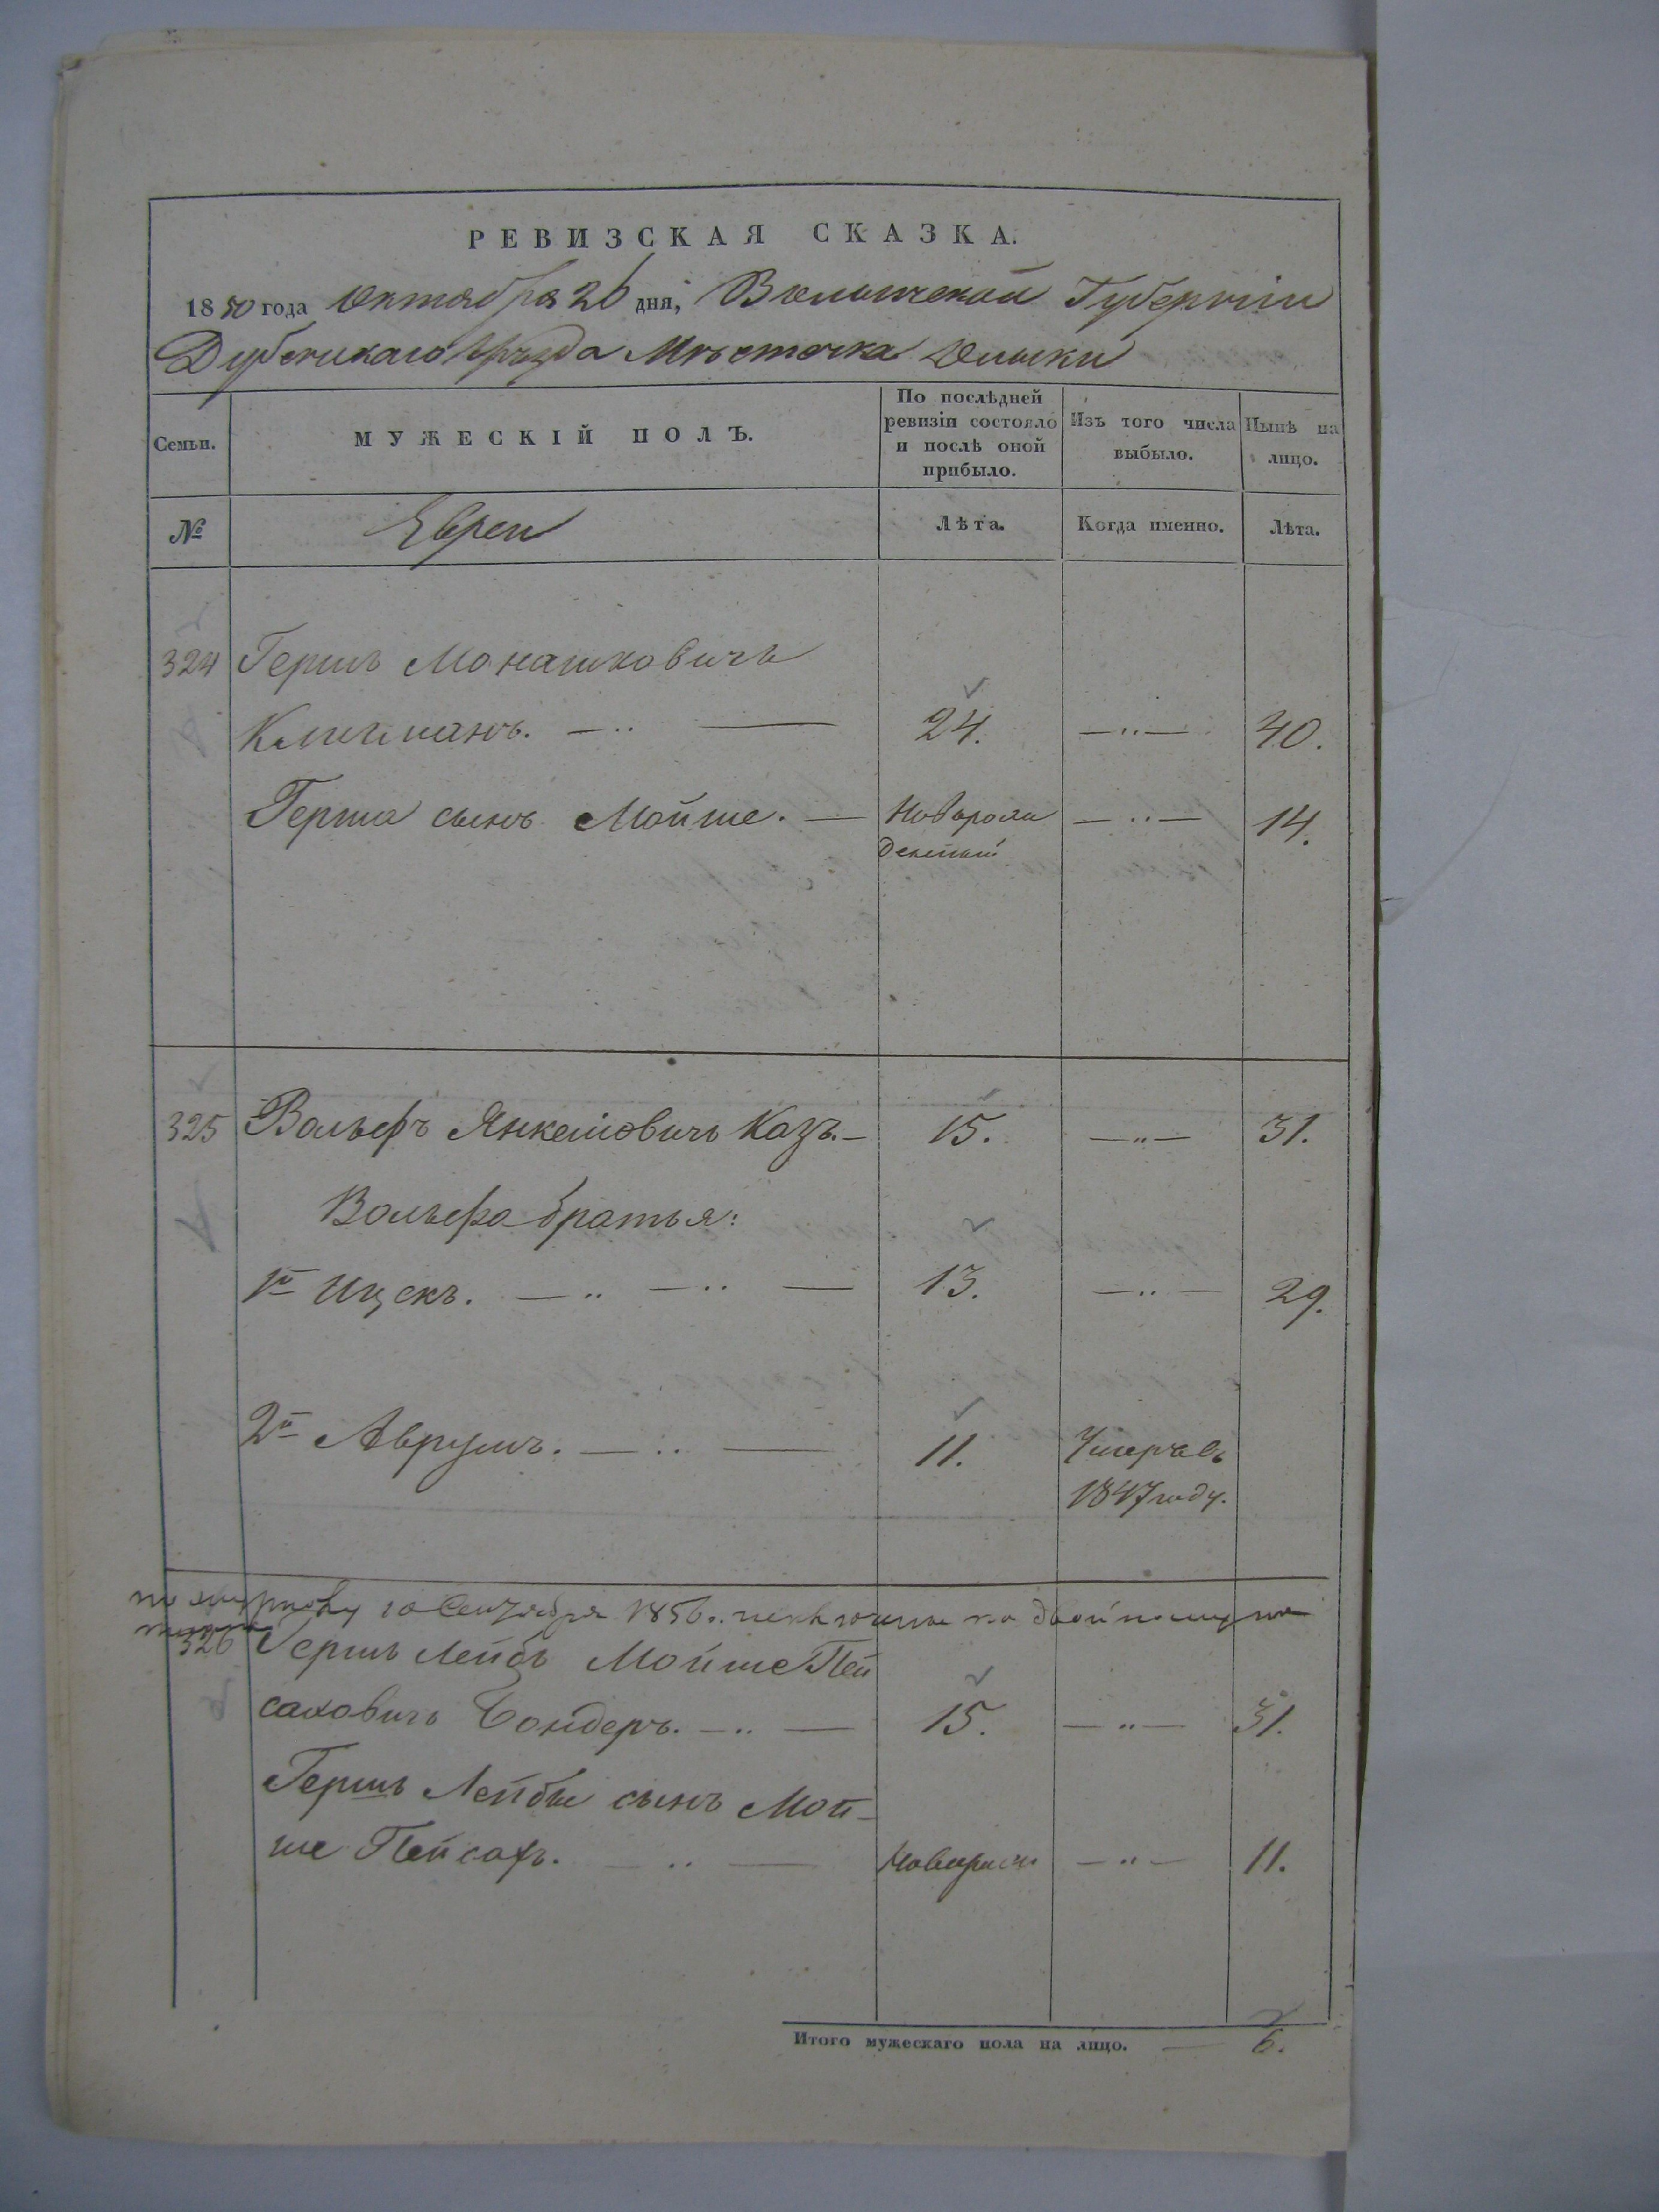 РЕВИЗСКАЯ СКАЗКА.
1850 года Октября 26 дня, Волынской Губерніи
Дубенскаго Уѣзда Мѣстечка Олыки
Семьи.
МУЖЕСКІЙ ПОЛЪ.
По послѣдней
ревизіи состояло
и послѣ оной
прибыло.
Изъ того числа
выбыло.
Нынѣ на
лицо.
№
Евреи
Лѣта.
Когда именно.
Лѣта.
324 Гершъ Монашковичъ
24. —„— 40.
Герша сынъ Мойше. — Новорож —„— 14.
денный
325 Вольфъ Янкелiовичъ Казъ. — 15. —„— 31.
Вольфа братья:
1й Ицекъ. —„—„— 13. —„— 29.
2й Аврумъ. —„— 11. Умеръ въ
1847 году.
10 Сентября 1856
326 Гершъ Лейбъ Мойше Пей
саховичъ Бондеръ. —„— 15. —„— 31.
Гершъ Лейбы сынъ Мой-
ше Пейсахъ. —„— Новорож —„— 11.
Итого мужескаго пола на лицо. — 6.